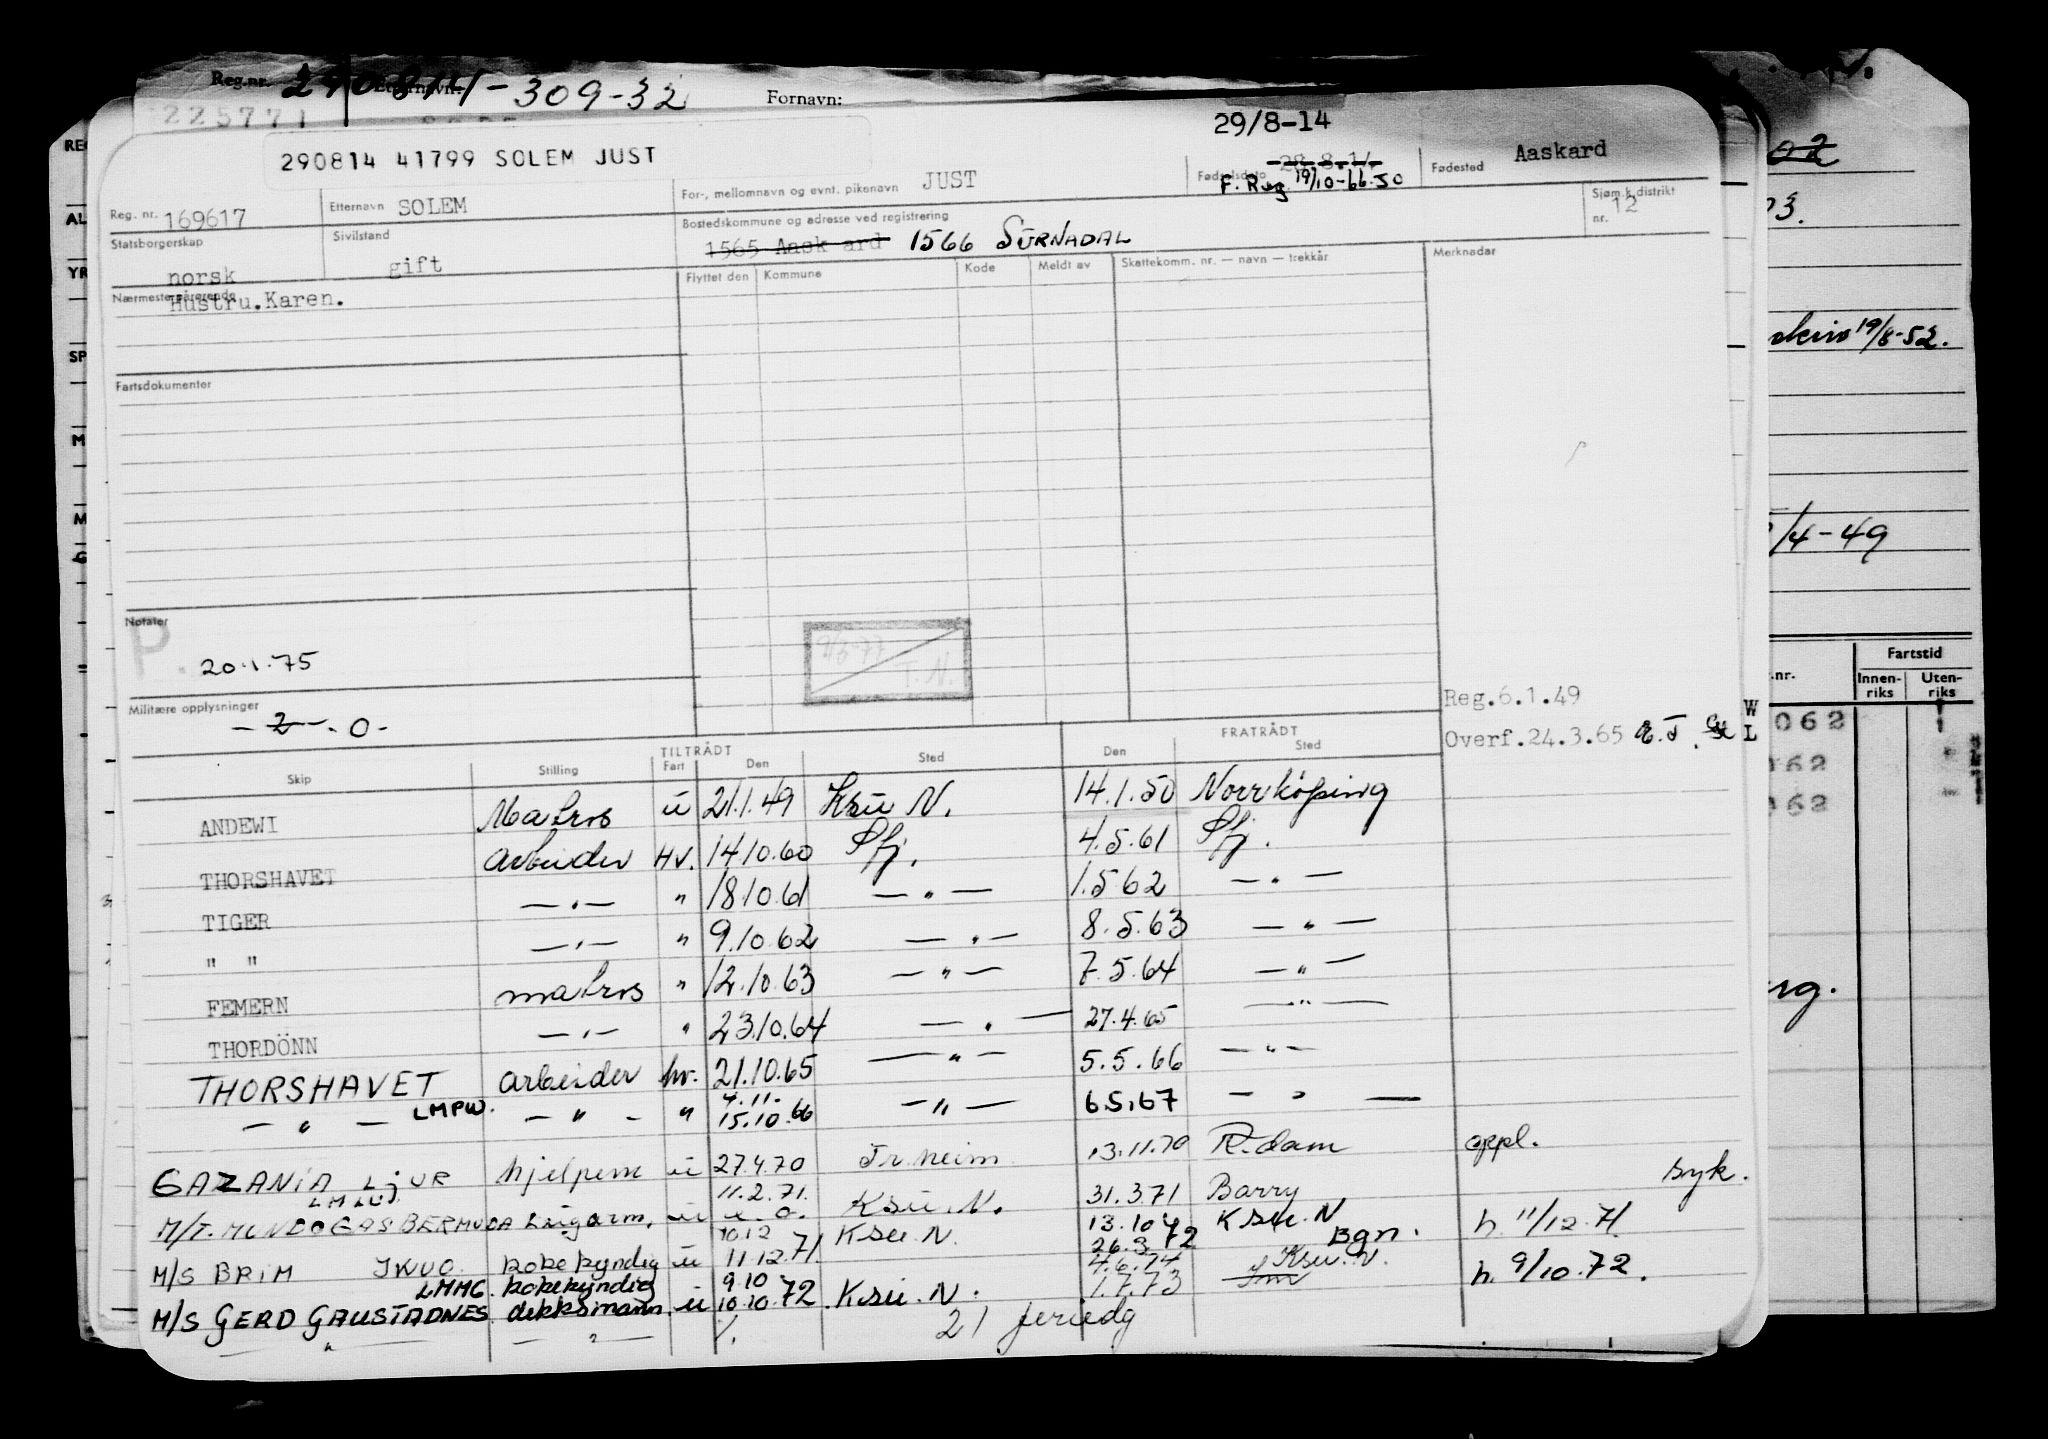 Reg.nr. 290814-309-32 Fornavn:
225771
290814 41799 SOLEM JUST
29/8-14
Reg. nr. 169617 Etternavn SOLEM For-, mellomnavn og evnt. pikenavn JUST Fødselsdato 28.8.14 Fødested Aaskard
F. Reg. 19/10-66. SO
Statsborgerskap norsk Sivilstand gift Bostedskommune og adresse ved registrering 1565 Aask ard 1566 SURNADAL Sjøm.k.distrikt nr. 12
Nærmeste pårørende Hustru.Karen.
Flyttet den Kommune Kode Meldt av Skattekomm. nr. — navn — trekkår Merknader
Fartsdokumenter
Notater
P. 20.1.75
9/3-77 T.N.
Militære opplysninger
- 2 - . 0 -
Reg.6.1.49
Overf.24.3.65 W L
TILTRÅDT FRATRÅDT
Skip Stilling Fart Den Sted Den Sted
ANDEWI Matros u 21.1.49 Ksu N. 14.1.50 Norrköping
THORSHAVET arbeider Hv. 14.10.60 Sfj. 4.5.61 Sfj.
TIGER — " — " 18.10.61 — " — 1.5.62 — " —
" " — " — " 9.10.62 — " — 8.5.63 — " —
FEMERN matros " 12.10.63 — " — 7.5.64 — " —
THORDÖNN — " — " 23.10.64 — " — 27.4.65 — " —
THORSHAVET arbeider hv. 21.10.65 — " — 5.5.66 — " —
— " — LMPW. — " — " 4.11. 15.10.66 — " — 6.5.67 — " —
GAZANIA LJUR hjelpem u 27.4.70 Tr.heim 13.11.70 R.dam oppl.
M/T. MUNDOGAS BERMUDA u 11.2.71. Ksu. N. 31.3.71 Barry syk.
M/S BRIM JKUO. kokekyndig u 10.12 11.12.71. Ksu. N. 26.3.72 Bgn. h. 11/12.71.
M/S GERD GAUSTADNES LMMG. kokekyndig dekksmann u 9.10 10.10.72 Ksu. N. 1.7.73 h. 9/10.72.
— " — — " — 4.6.74 Ksu. N.
21 feriedg
19/8-52.
/4-49
Fartstid
Innenriks Utenriks
062
062
062